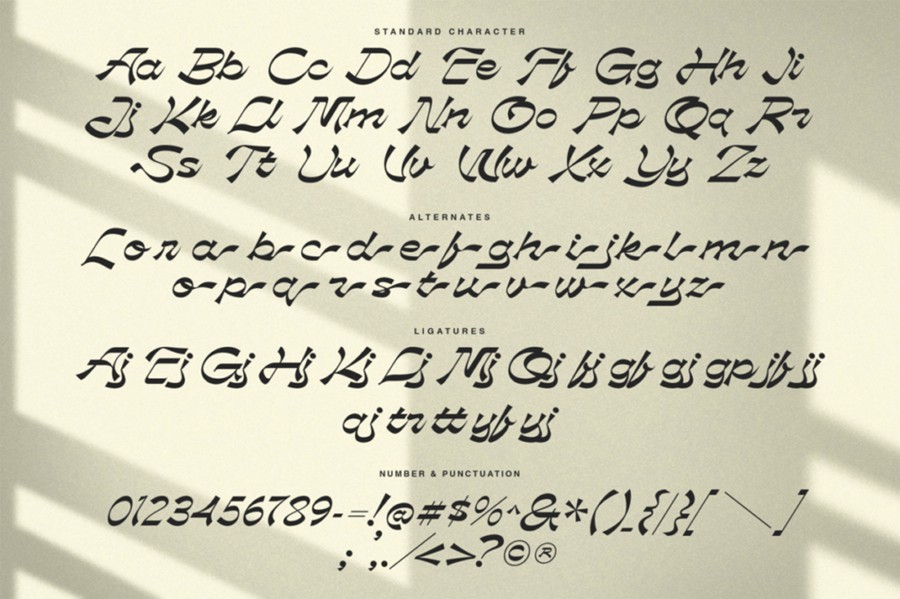 STANDARD CHARACTER
Aa Bb Cc Dd Ee Ff Gg Hh Ii
Jj Kk Ll Mm Nn Oo Pp Qq Rr
Ss Tt Uu Vv Ww Xx Yy Zz
ALTERNATES
L o r a b c d e f g h i j k l m n
o p q r s t u v w x y z
LIGATURES
Aj Ej Gj Hj Kj Lj Mj Qj fj gf gj gp jf jj
qj tr tt yf yj
NUMBER & PUNCTUATION
0123456789-=!@#$%^&*()_{|}[\]
;',./<>?©®